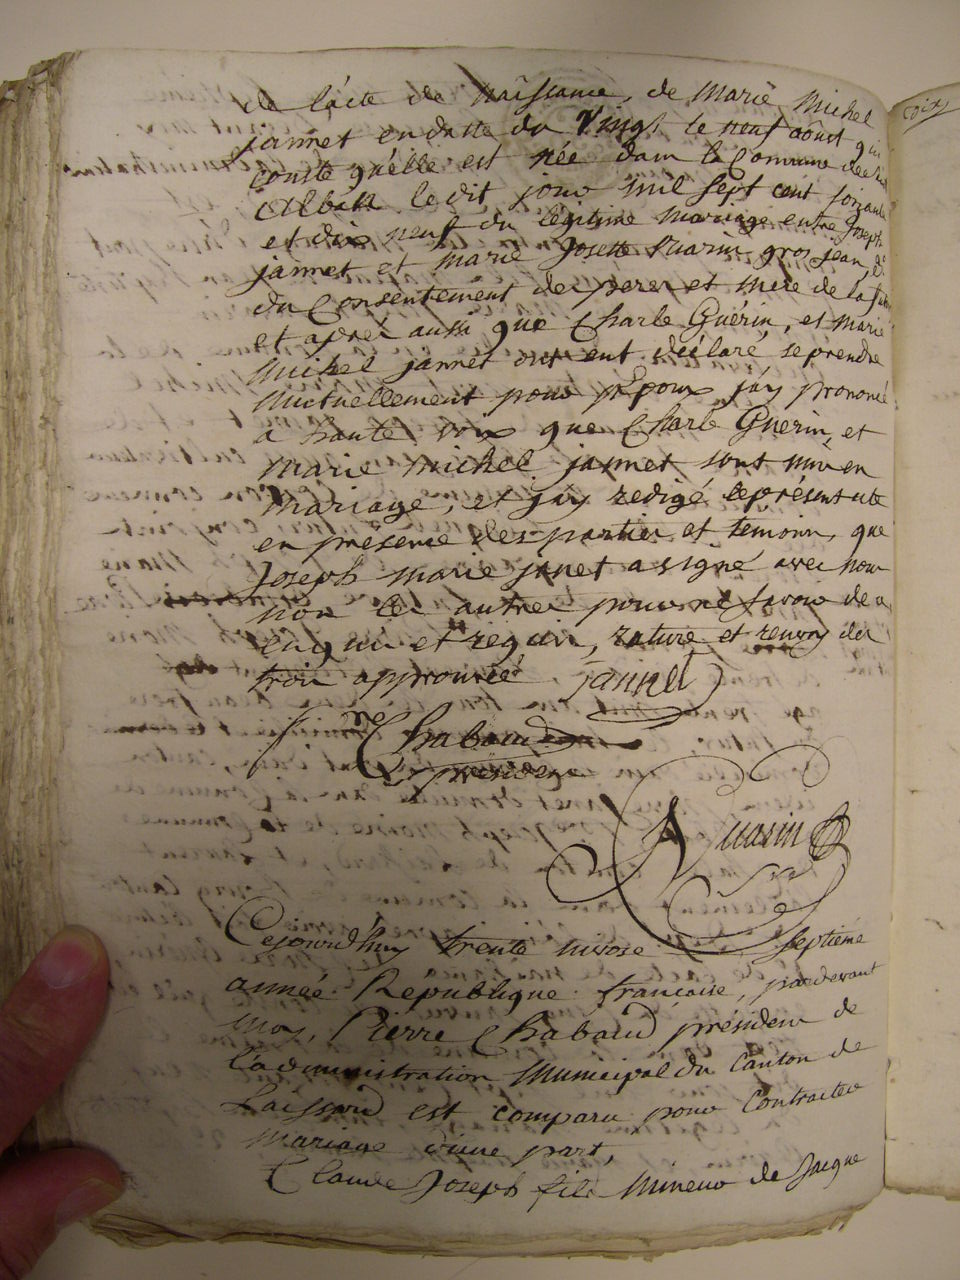 de l'acte de naissance, de Marie Michel
jannet en datte du Vingt le neuf aôust qui
conste quélle est née dans la Comune de St
Alban le dit jour mil sept cent soixante
et dix neuf du legitime mariage entre Joseph
jannet et marie Josette Ruarin gros jean
du Consentement de perer et mere de la
et aprer aussi que Charle Guérin, et Marie
Michel jannet ont eut déclaré se prendre
Mutuellement pour Epoux j'ay prononcé
a haute voix que Charle Guerin, et
marie michel jannet sont unir en
mariage, et j'ay redigé le présent acte
en présence des partier et temoins, que
Joseph marie janet a signé avec nous
non les autres pour ne savoir de a
enquir et requir, rature et renvoy der
troir approuvéé jannet
Chabaud
président
Ruarin
Sre
Cejourd'huy trente nivose septieme
année Republique francaise, pardevant
Moy, Pierre Chabaud président de
l'administration Municipal du Canton de
Saissard est comparu pour Contracter
Mariage d'une part,
Claude Joseph fils Mineur de Jacque
dix